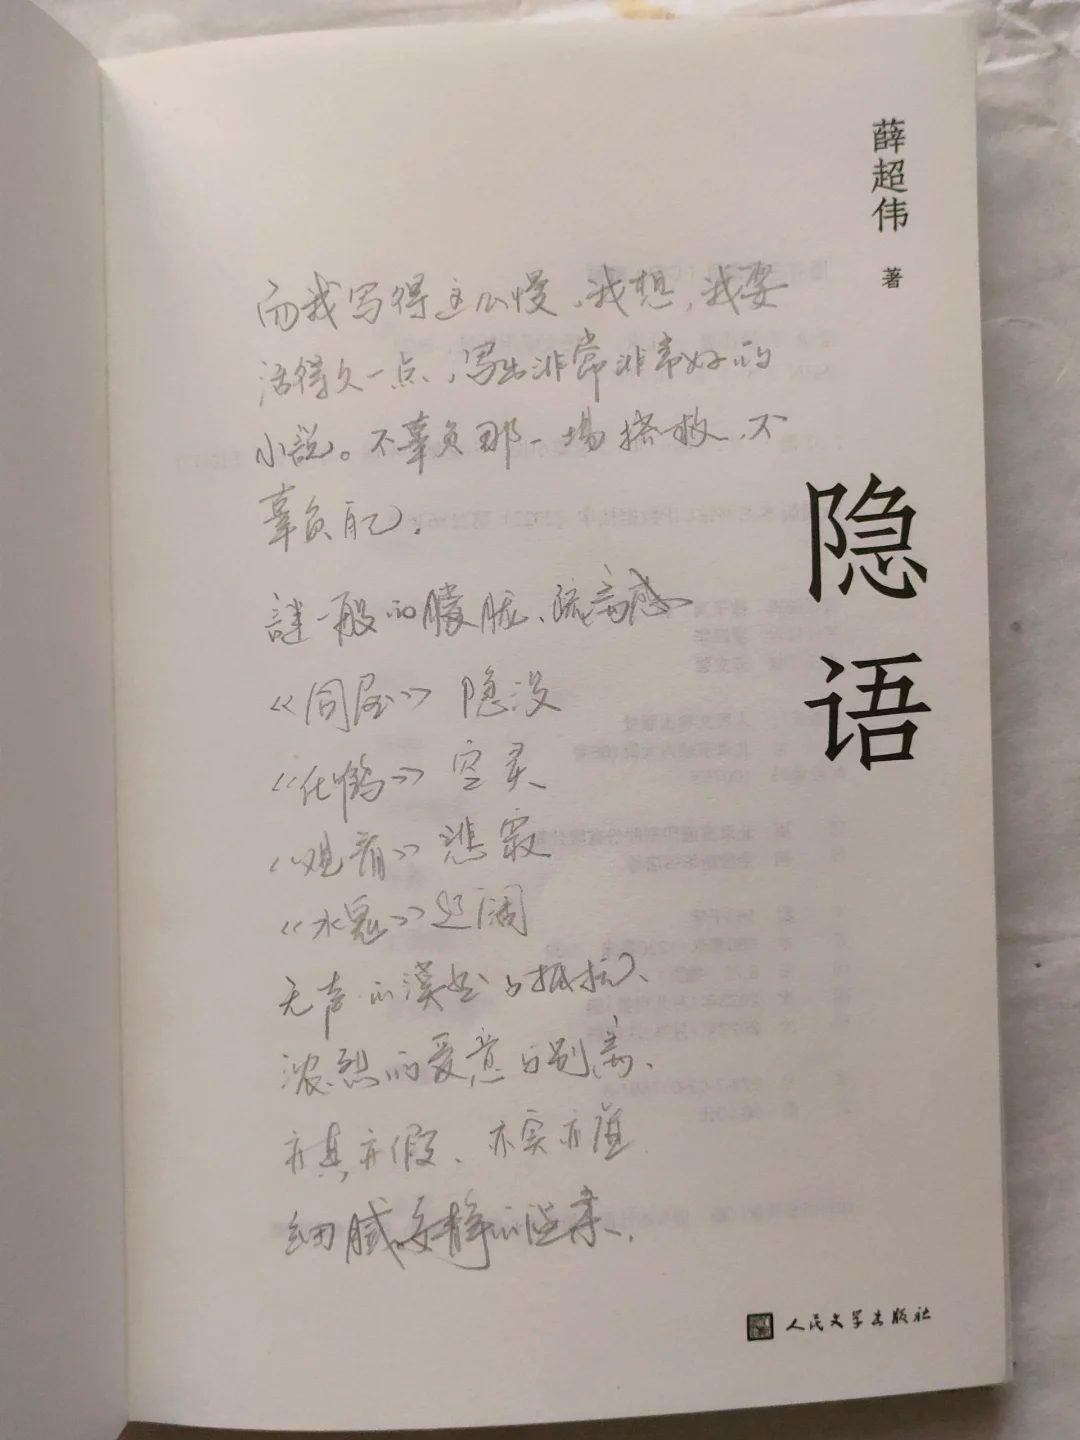 薛超伟 著
隐语
而我写得这么慢，我想，我要
活得久一点，写出非常非常好的
小説。不辜负那一場搭救，不
辜负自己。
謎一般的朦胧、疏离感
《同屋》 隐没
《化鹤》 空灵
《观音》 悲寂
《水鬼》 辽阔
无声的漠然与抵抗、
浓烈的爱意与别离、
亦真亦假、亦实亦虚
细腻 安静的温柔、
人民文学出版社